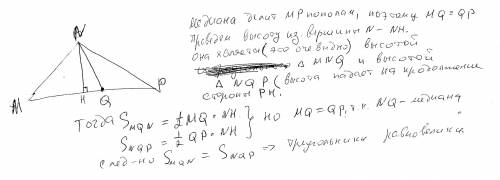 N
M H Q P
Медиана делит MP пополам, поэтому MQ = QP
Проведем высоту из вершины N - NH.
Она является (это очевидно) высотой
△ MNQ и высотой
△ NQP (высота падает на продолжение
стороны PH.
Тогда S MQN = 1/2 MQ · NH } но MQ = QP, т.к. NQ - медиана
S NQP = 1/2 QP · NH
след-но S MQN = S NQP => треугольники равновелики